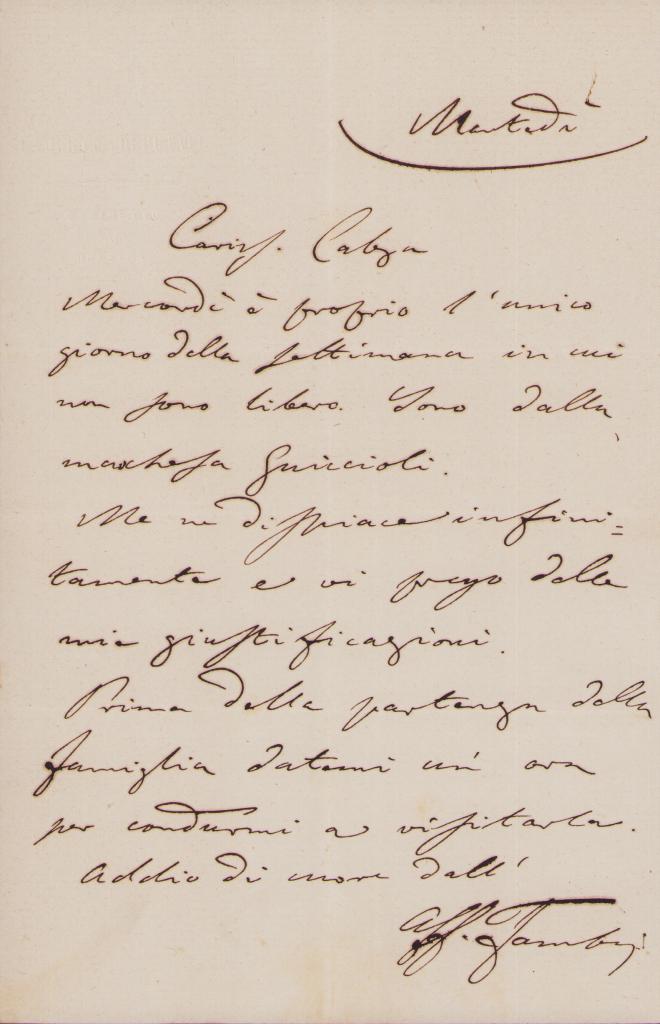 Martedì
Cariss. Calza
Mercordì è proprio l'unico
giorno della settimana in cui
non sono libero. Sono dalla
marchesa Guiccioli.
Me ne dispiace infini=
tamente e vi prego delle
mie giustificazioni.
Prima della partenza della
famiglia datemi un'ora
per condurmi a visitarla.
Addio di cuore dall'
Aff. Tamburi